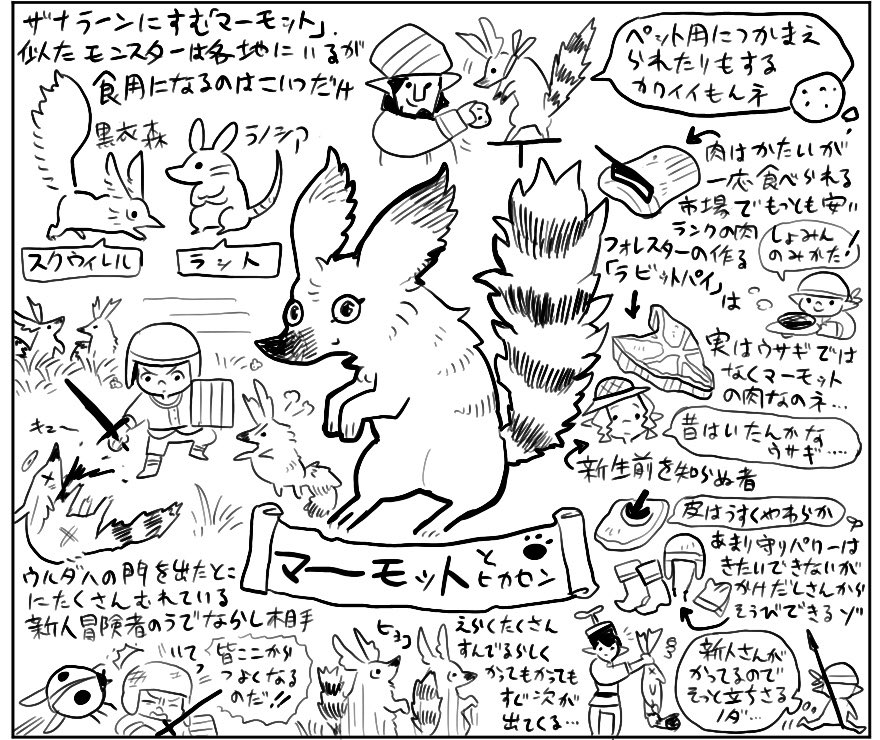 ザナラーンにすむ「マーモット」.
似たモンスターは各地にいるが
食用になるのはこいつだけ
黒衣森
ラノシア
スクウィレル
ラット
ペット用につかまえ
られたりもする
カワイイもんネ
肉はかたいが
一応食べられる
市場でもっとも安い
ランクの肉
しょみん
のみかた!
フォレスターの作る
「ラビットパイ」
は
実はウサギでは
なくマーモット
の肉なのネ…
昔はいたんかな
ウサギ……
新生前を知らぬ者
キュー
皮はうすくやわらか
あまり守りパワーは
きたいできないが
かけだしさんから
そうびできるゾ
マーモット
と
ヒカセン
ウルダハの門を出たとこ
にたくさんむれている
新人冒険者のうでならし相手
いてっ
皆ここから
つよくなる
のだ!!
ヒョコ
えらくたくさん
すんでるらしく
かってもかっても
すぐ次が
出てくる…
新人さんが
かってるので
そっと立ちさる
ノダ…